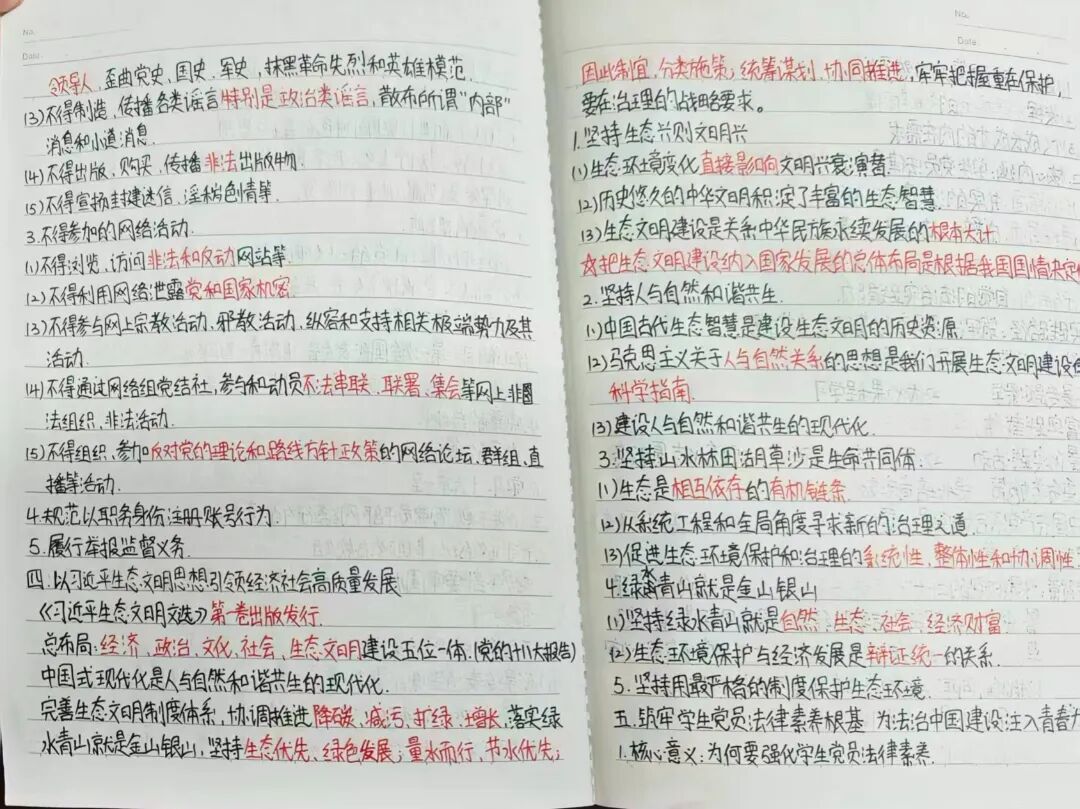 No.
Date.
领导人，歪曲党史，国史，军史，抹黑革命先烈和英雄模范．
(3)不得制造，传播各类谣言特别是政治类谣言，散布所谓“内部”
消息和小道消息．
(4)不得出版、购买、传播非法出版物
(5)不得宣扬封建迷信、淫秽色情等．
3.不得参加的网络活动．
(1)不得浏览、访问非法和反动网站等
(2)不得利用网络泄露党和国家机密
(3)不得参与网上宗教活动、邪教活动、纵容和支持相关极端势力及其
活动．
(4)不得通过网络组党结社，参与和动员不法串联、联署、集会等网上非
法组织、非法活动．
(5)不得组织、参加反对党的理论和路线方针政策的网络论坛、群组、直
播等活动．
4.规范以职务身份注册账号行为．
5.履行举报监督义务．
四：以习近平生态文明思想引领经济社会高质量发展
《习近平生态文明文选》第一卷出版发行．
总布局：经济、政治、文化、社会、生态文明建设五位一体．(党的十八大报告)
中国式现代化是人与自然和谐共生的现代化．
完善生态文明制度体系，协调推进降碳、减污、扩绿、增长，落实绿
水青山就是金山银山，坚持生态优先、绿色发展；量水而行，节水优先；
No.
Date.
因此制宜，分类施策；统筹谋划，协同推进，牢牢把握重在保护，
要在治理的战略要求。
1.坚持生态兴则文明兴
(1)生态环境变化直接影响文明兴衰演替．
(2)历史悠久的中华文明积淀了丰富的生态智慧．
(3)生态文明建设是关系中华民族永续发展的根本大计．
☆把生态文明建设纳入国家发展的总体布局是根据我国国情决定
2.坚持人与自然和谐共生．
(1)中国古代生态智慧是建设生态文明的历史资源．
(2)马克思主义关于人与自然关系的思想是我们开展生态文明建设
科学指南．
(3)建设人与自然和谐共生的现代化．
3.坚持山水林田湖草沙是生命共同体．
(1)生态是相互依存的有机链条．
(2)从系统工程和全局角度寻求新的治理之道．
(3)促进生态环境保护和治理的系统性、整体性和协调性
4.绿水青山就是金山银山
(1)坚持绿水青山就是自然、生态、社会、经济财富
(2)生态环境保护与经济发展是辩证统一的关系．
5.坚持用最严格的制度保护生态环境．
五．筑牢学生党员法律素养根基 为法治中国建设注入青春
1.核心意义：为何要强化学生党员法律素养．